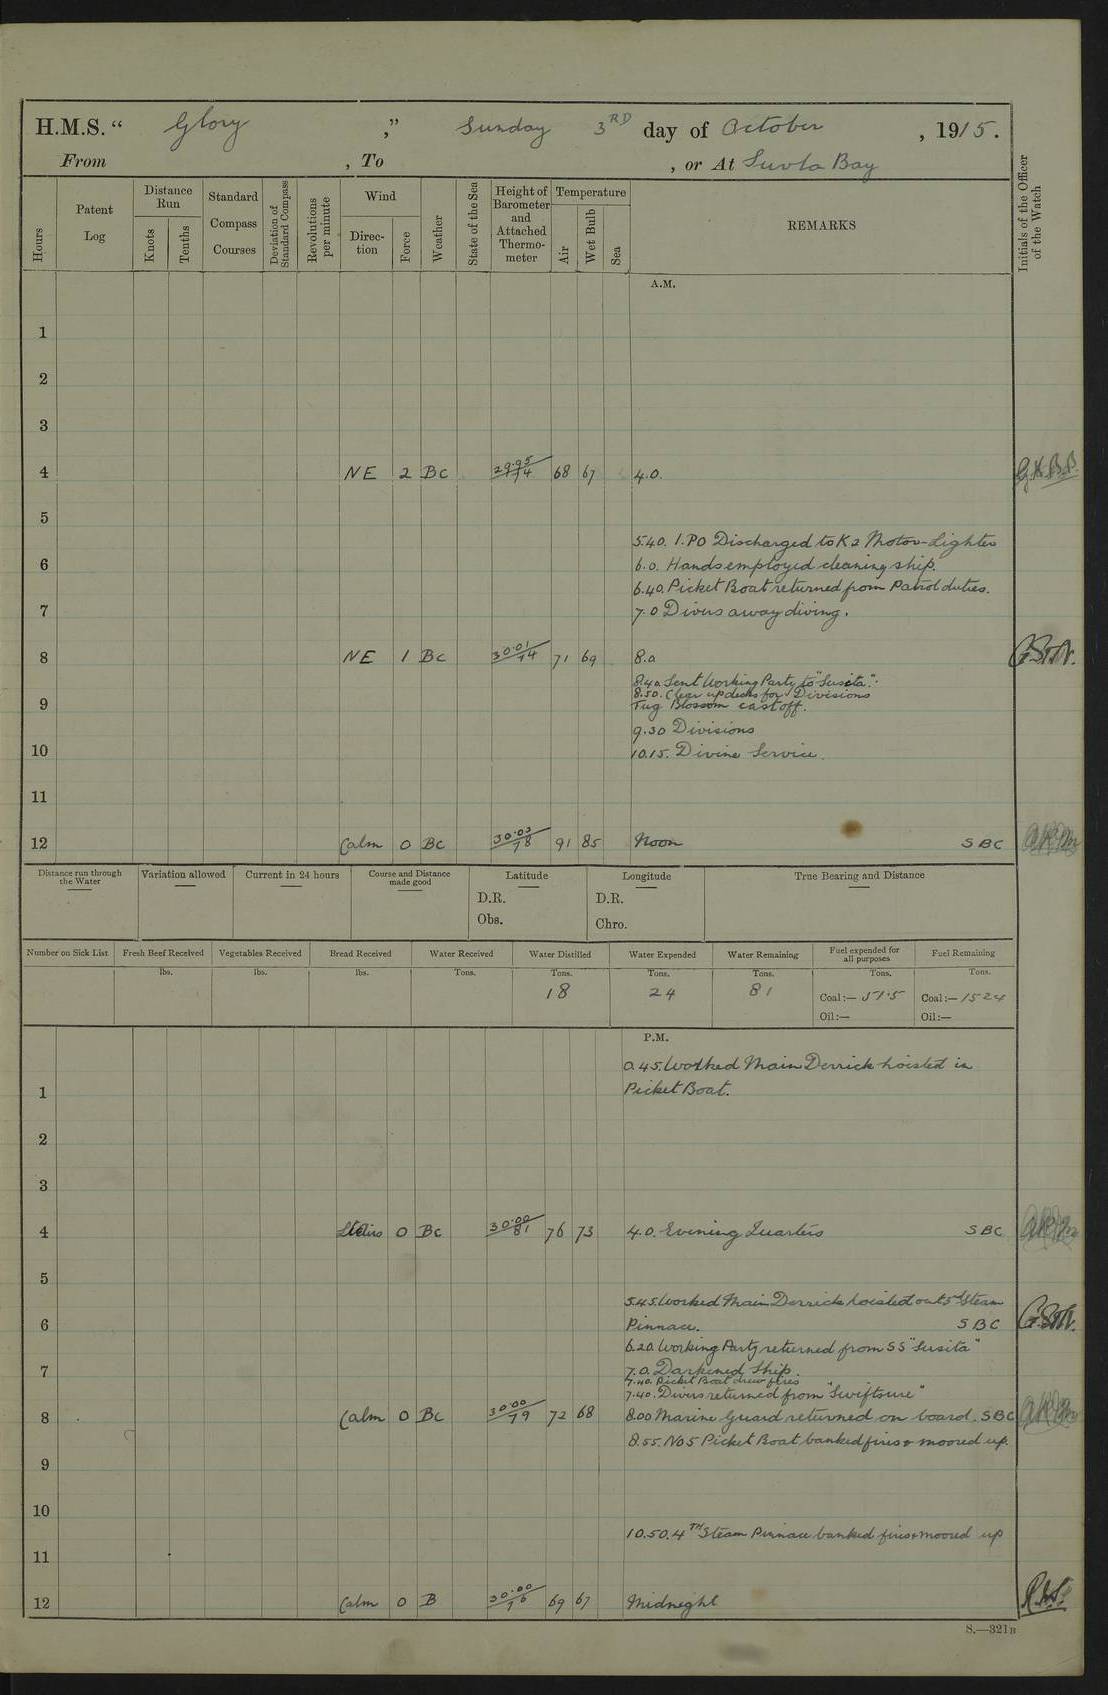 H.M.S. “ Glory ,” Sunday 3RD day of October , 1915.
From , To , or At Suvla Bay
Hours
Patent Log
Distance Run
Knots
Tenths
Standard Compass Courses
Deviation of Standard Compass
Revolutions per minute
Wind
Direction
Force
Weather
State of the Sea
Height of Barometer and Attached Thermometer
Temperature
Air
Wet Bulb
Sea
REMARKS
Initials of the Officer of the Watch
A.M.
1
2
3
4 NE 2 Bc 29.95/74 68 67 4.0.
5
5.40. 1.PO Discharged to K2 Motor-Lighter
6 6.0. Hands employed cleaning ship.
6.40. Picket Boat returned from Patrol duties.
7 7.0 Divers away diving.
8 NE 1 Bc 30.01/74 71 69 8.0
8.40. Sent Working Party to "Susita".
8.50. Clear up decks for Divisions
9 Tug Blossom cast off.
9.30 Divisions
10 10.15. Divine Service.
11
12 Calm 0 Bc 30.03/78 91 85 Noon SBC
Distance run through the Water
Variation allowed
Current in 24 hours
Course and Distance made good
Latitude
D.R.
Obs.
Longitude
D.R.
Chro.
True Bearing and Distance
Number on Sick List
Fresh Beef Received
lbs.
Vegetables Received
lbs.
Bread Received
lbs.
Water Received
Tons.
Water Distilled
Tons.
18
Water Expended
Tons.
24
Water Remaining
Tons.
81
Fuel expended for all purposes
Tons.
Coal:— 51.5
Oil:—
Fuel Remaining
Tons.
Coal:— 1524
Oil:—
P.M.
0.45. Worked Main Derrick hoisted in
1 Picket Boat.
2
3
4 0 Bc 30.00/81 76 73 4.0. Evening Quarters SBC
5
5.45. Worked Main Derrick hoisted out Steam
6 Pinnace. SBC
6.20. Working Party returned from SS "Susita"
7 7.0. Darkened Ship.
7.40. Picket Boat drew fires
7.40. Divers returned from "Swiftsure"
8 Calm 0 Bc 30.00/79 72 68 8.00 Marine Guard returned on board. SBC
8.55. No5 Picket Boat banked fires & moored up.
9
10
10.50. 4TH Steam Pinnace banked fires & moored up
11
12 Calm 0 B 30.00/76 69 67 Midnight
S.—321B